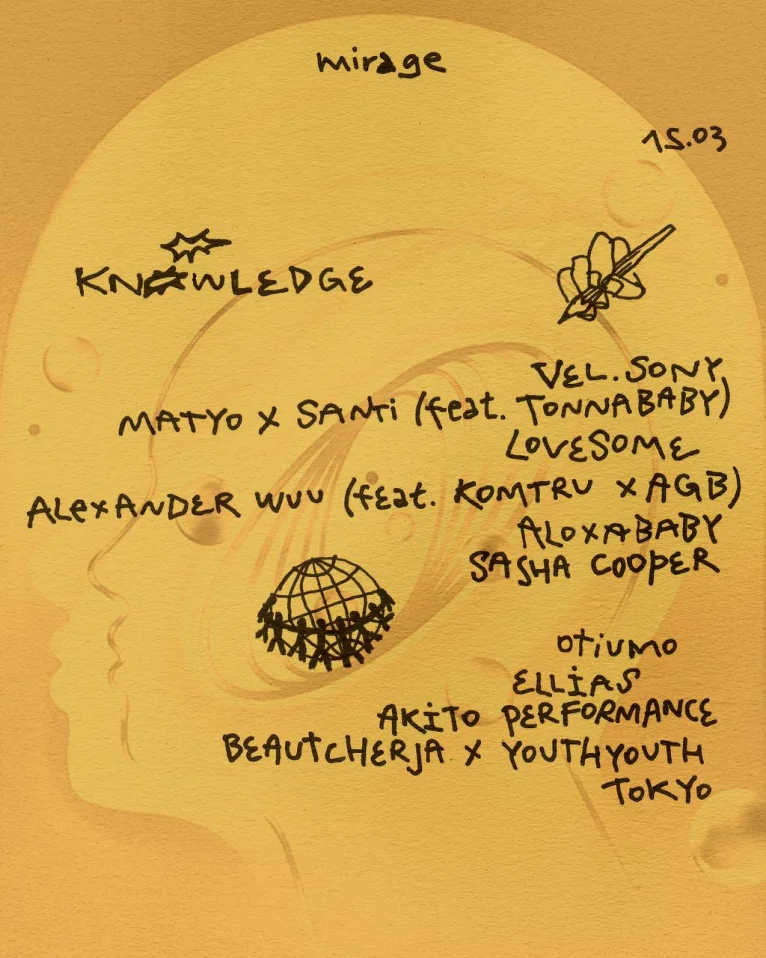 mirage
15.03
KNOWLEDGE
VEL.SONY
MATYO X SANTi (feat. TONNABABY)
LOVESOME
ALexANDER WUU (feat. KOMTRU X AGB)
ALOXABABY
SASHA COOPER
otiumo
ELLiAS
AKiTO PERFORMANCE
BEAUTCHERJA X YOUTHYOUTH
TOKYO